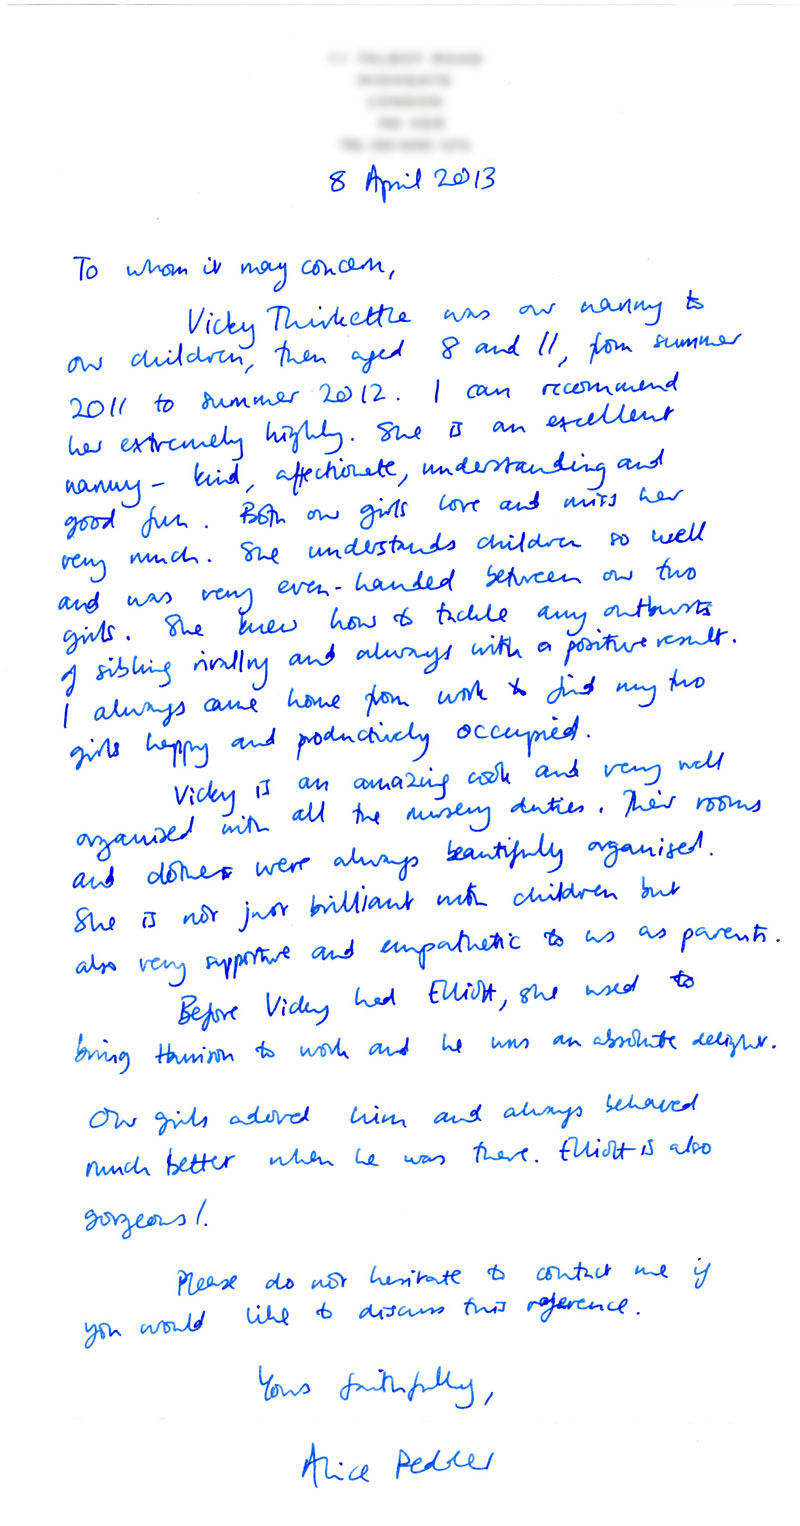 8 April 2013
To whom it may concern,
Vicky Thirkettle was our nanny to
our children, then aged 8 and 11, from summer
2011 to summer 2012. I can recommend
her extremely highly. She is an excellent
nanny - kind, affectionate, understanding and
good fun. Both our girls love and miss her
very much. She understands children so well
and was very even-handed between our two
girls. She knew how to tackle any outbursts
of sibling rivalry and always with a positive result.
I always came home from work to find my two
girls happy and productively occupied.
Vicky is an amazing cook and very well
organised with all the nursery duties. Their rooms
and clothes were always beautifully organised.
She is not just brilliant with children but
also very supportive and empathetic to us as parents.
Before Vicky had Elliott, she used to
bring Harrison to work and he was an absolute delight.
Our girls adored him and always behaved
much better when he was there. Elliott is also
gorgeous!.
Please do not hesitate to contact me if
you would like to discuss this reference.
Yours faithfully,
Alice Pedler